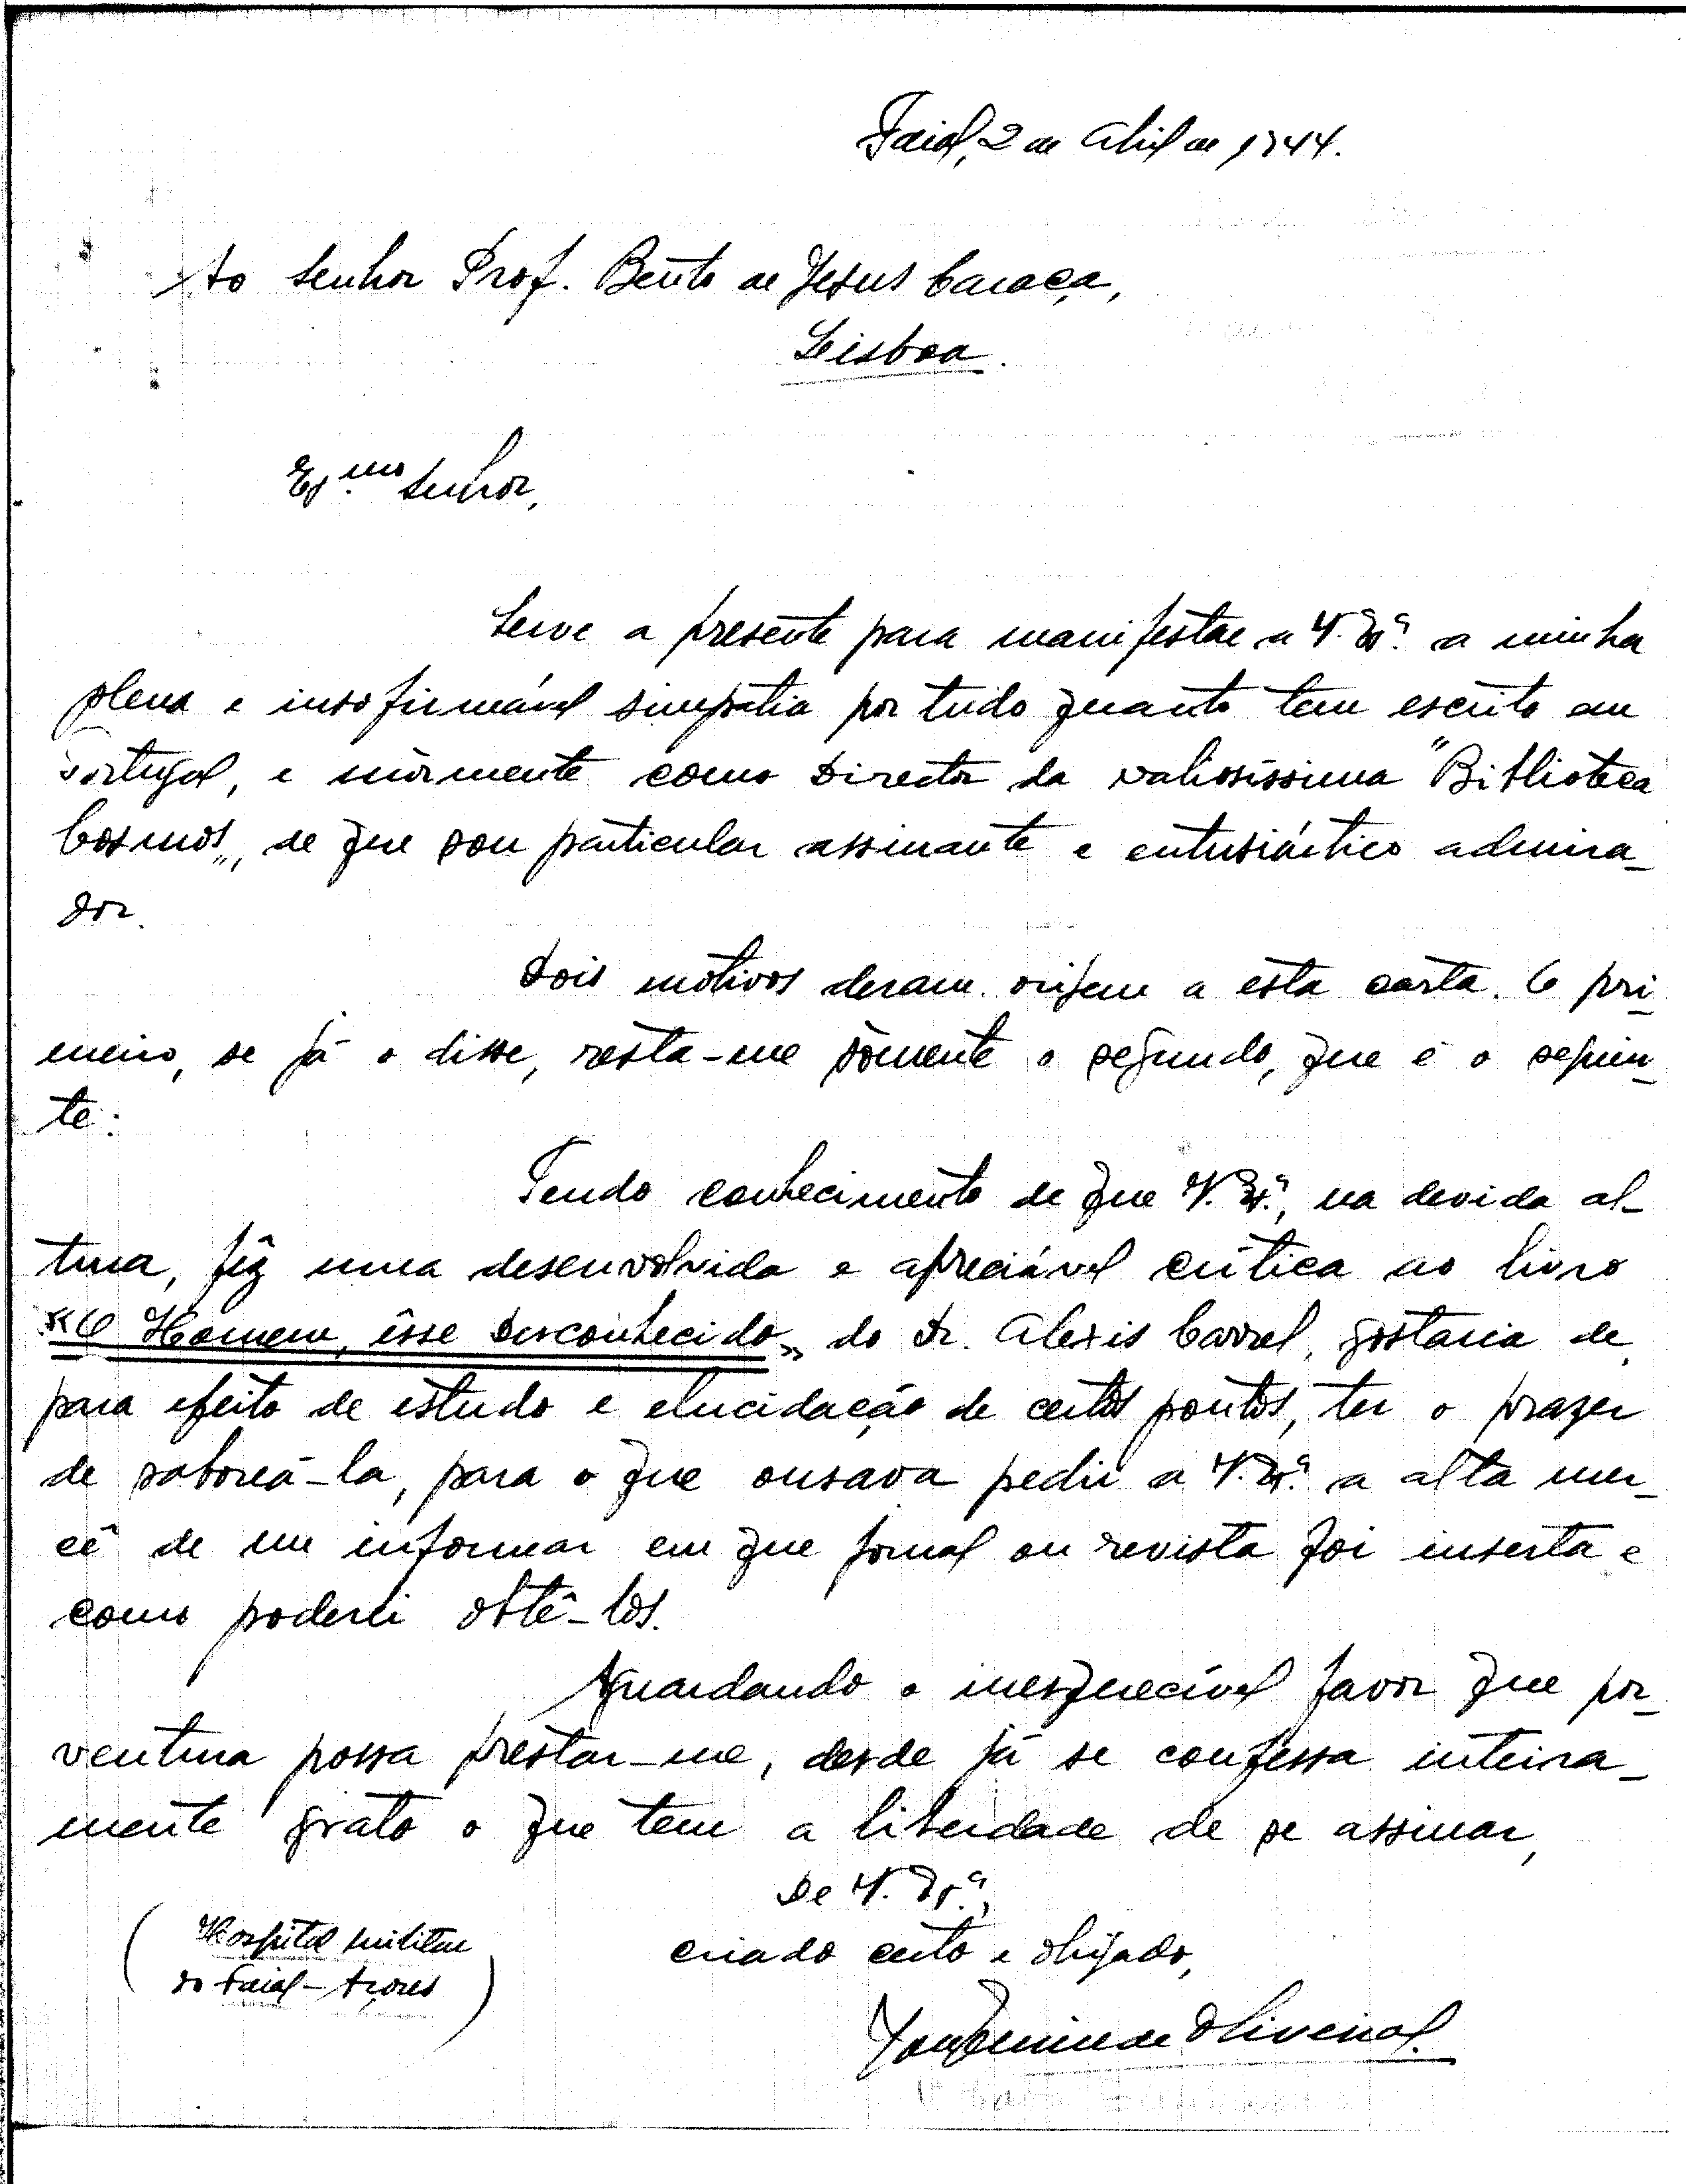 Faial, 2 de Abril de 1944.
Ao Senhor Prof. Bento de Jesus Caraça,
Lisboa.
Ex.mo Senhor,
Serve a presente para manifestar a V. Ex.ª a minha
plena e insofismável simpatia por tudo quanto tem escrito em
Portugal, e mòrmente como Director da valiosíssima "Biblioteca
Cosmos", de que sou particular assinante e entusiástico admira-
dor.
Dois motivos deram origem a esta carta. O pri-
meiro, se já o disse, resta-me sòmente o segundo, que é o seguin-
te:
Tendo conhecimento de que V. Ex.ª, na devida al-
tura, fêz uma desenvolvida e apreciável crítica ao livro
«O Homem, êsse Desconhecido» do Dr. Alexis Carrel, gostaria de,
para efeito de estudo e elucidação de certos pontos, ter o prazer
de saboreá-la, para o que ousava pedir a V. Ex.ª a alta mer-
cê de me informar em que jornal ou revista foi inserta e
como poderei obtê-los.
Aguardando o inesquecível favor que por-
ventura possa prestar-me, desde já se confessa inteira-
mente grato o que tem a liberdade de se assinar,
De V. Ex.ª,
criado certo e obrigado,
(Hospital Militar
do Faial - Açores)
de Oliveira